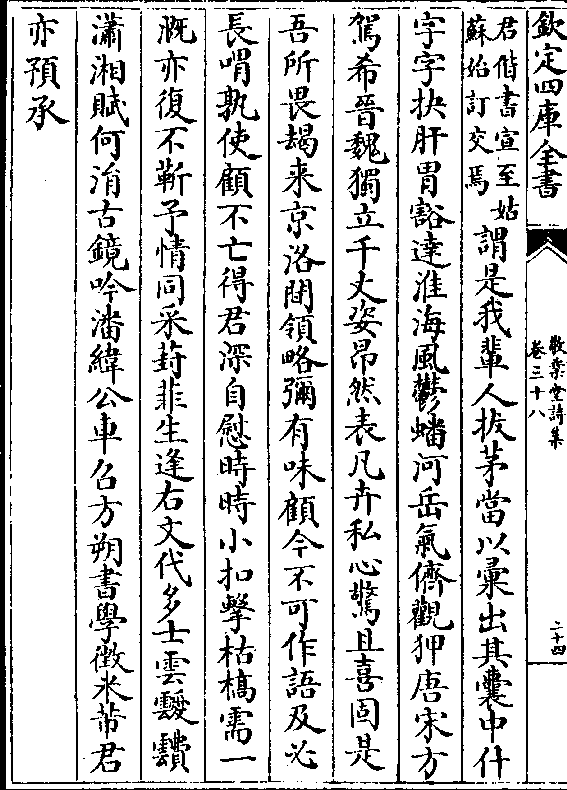 欽定四庫全書
敬業堂詩集
卷三十八
二十四
君偕書宣至姑
蘇始訂交焉
謂是我輩人拔茅當以彙出其囊中什
字字抉肝胃豁達淮海風鬱蟠河岳氣儕觀狎唐宋方
駕希晉魏獨立千丈姿昂然表凡卉私心驚且喜固是
吾所畏朅来京洛間領略彌有味顧今不可作語及必
長喟孰使顧不亡得君深自慰時時小扣擊枯槁需一
溉亦復不靳予情同采葑菲生逢右文代多士雲靉靅
瀟湘賦何消古鏡吟潘緯公車召方朔書學徵米芾君
亦預承